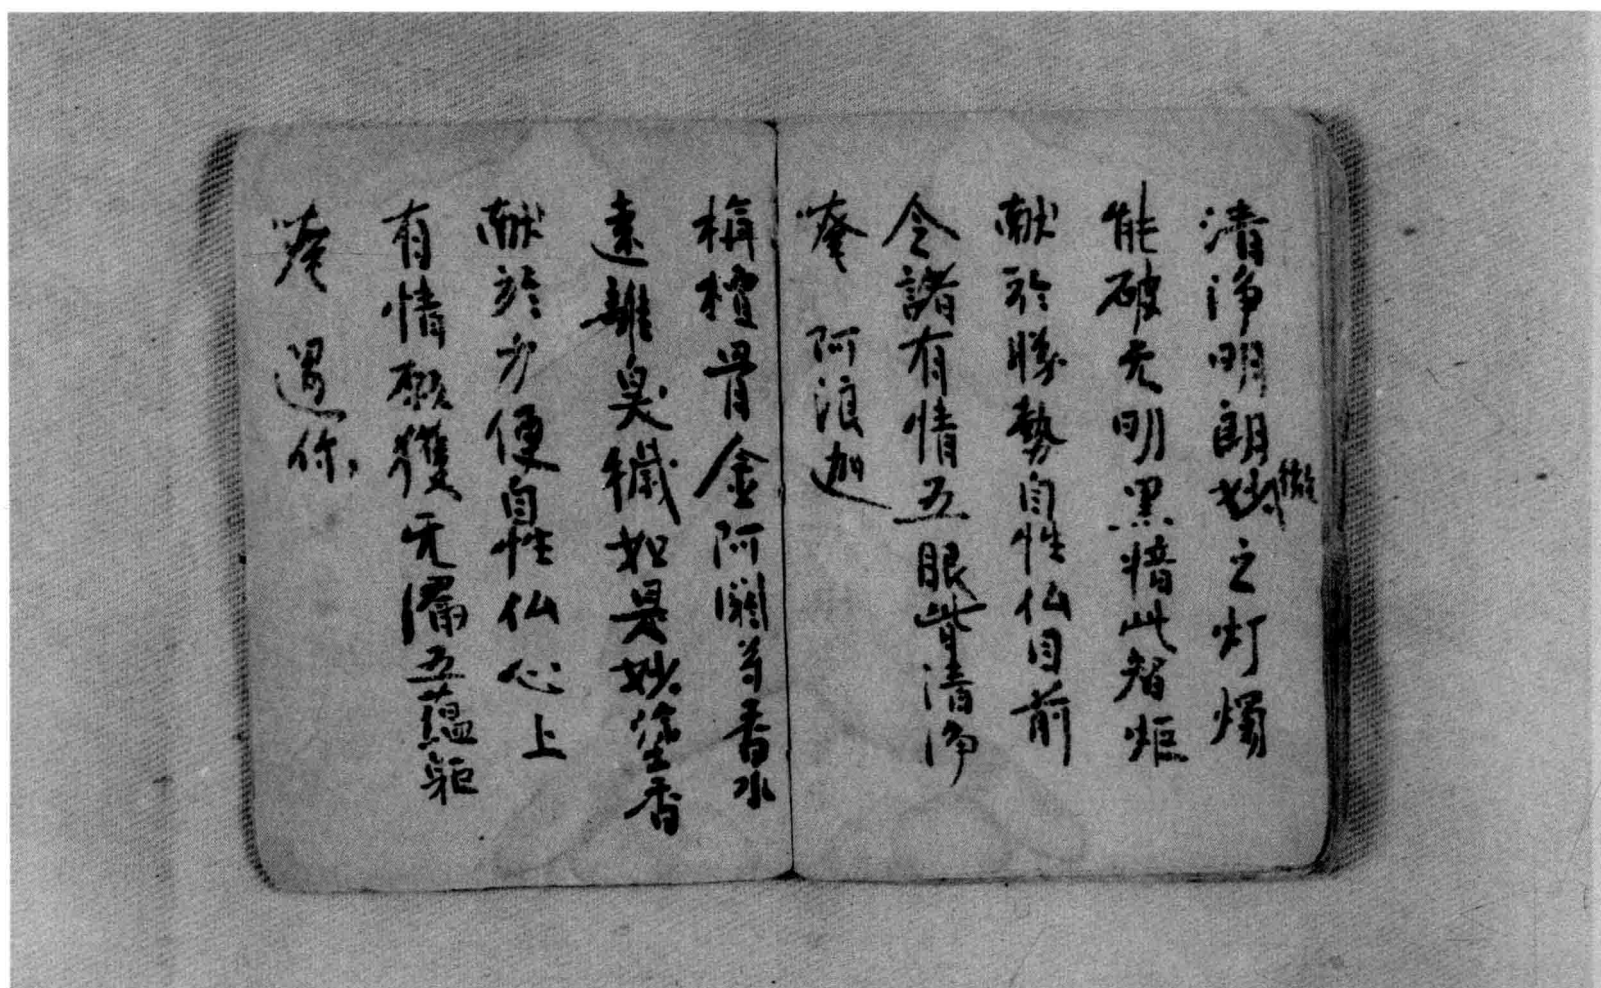 清净明朗妙微之灯燭
能破无明黑暗此智炬
献於勝勢自性仏目前
令諸有情五眼皆清净
唵 阿浪迦
栴檀骨金阿閦等香水
遠離臭穢如是妙塗香
献於方便自性仏心上
有情願獲无漏五蘊躯
唵 你